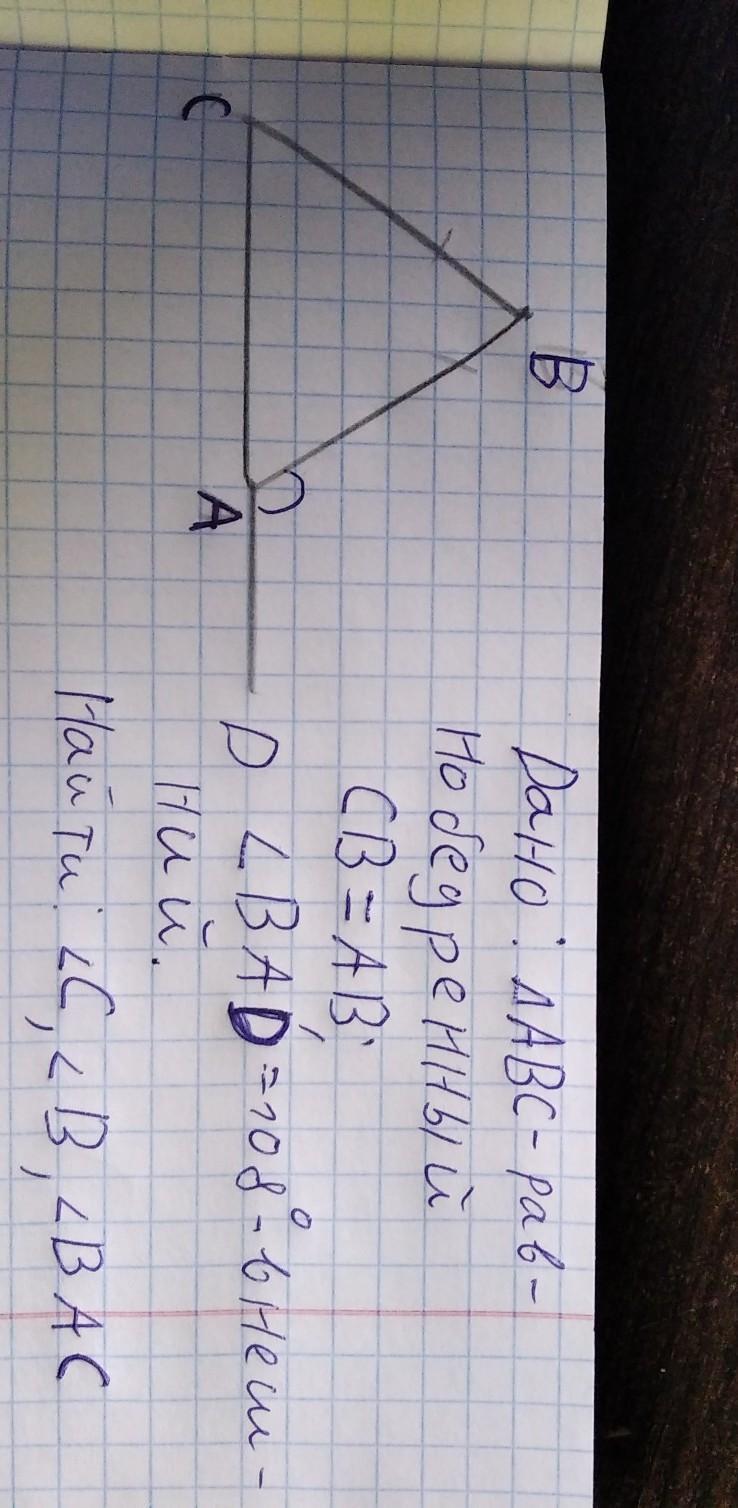 B
C
A
D
Дано: ΔABC-рав-
нобедренный
CB=AB;
∠BAD=108°-внеш-
ний.
Найти: ∠C, ∠B, ∠BAC